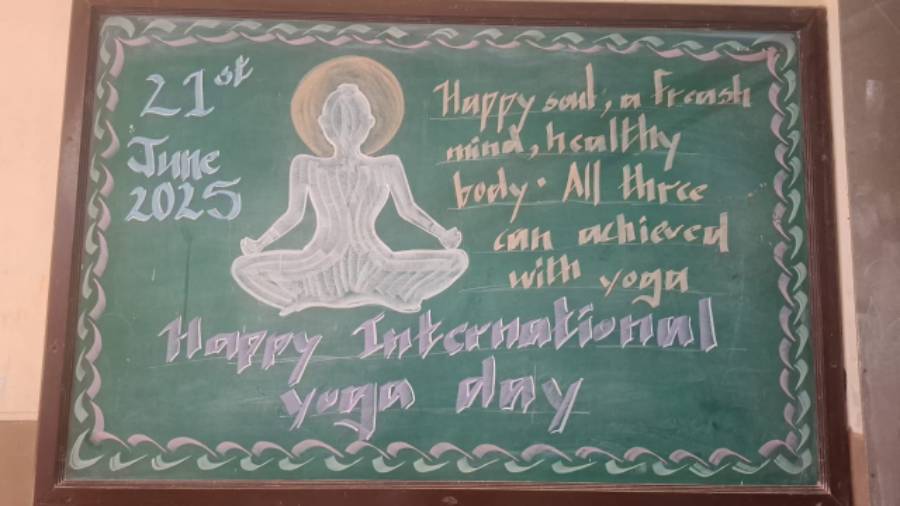 21st
June
2025
Happy soul, a Freash
mind, healthy
body. All three
can achieved
with yoga
Happy International
yoga day